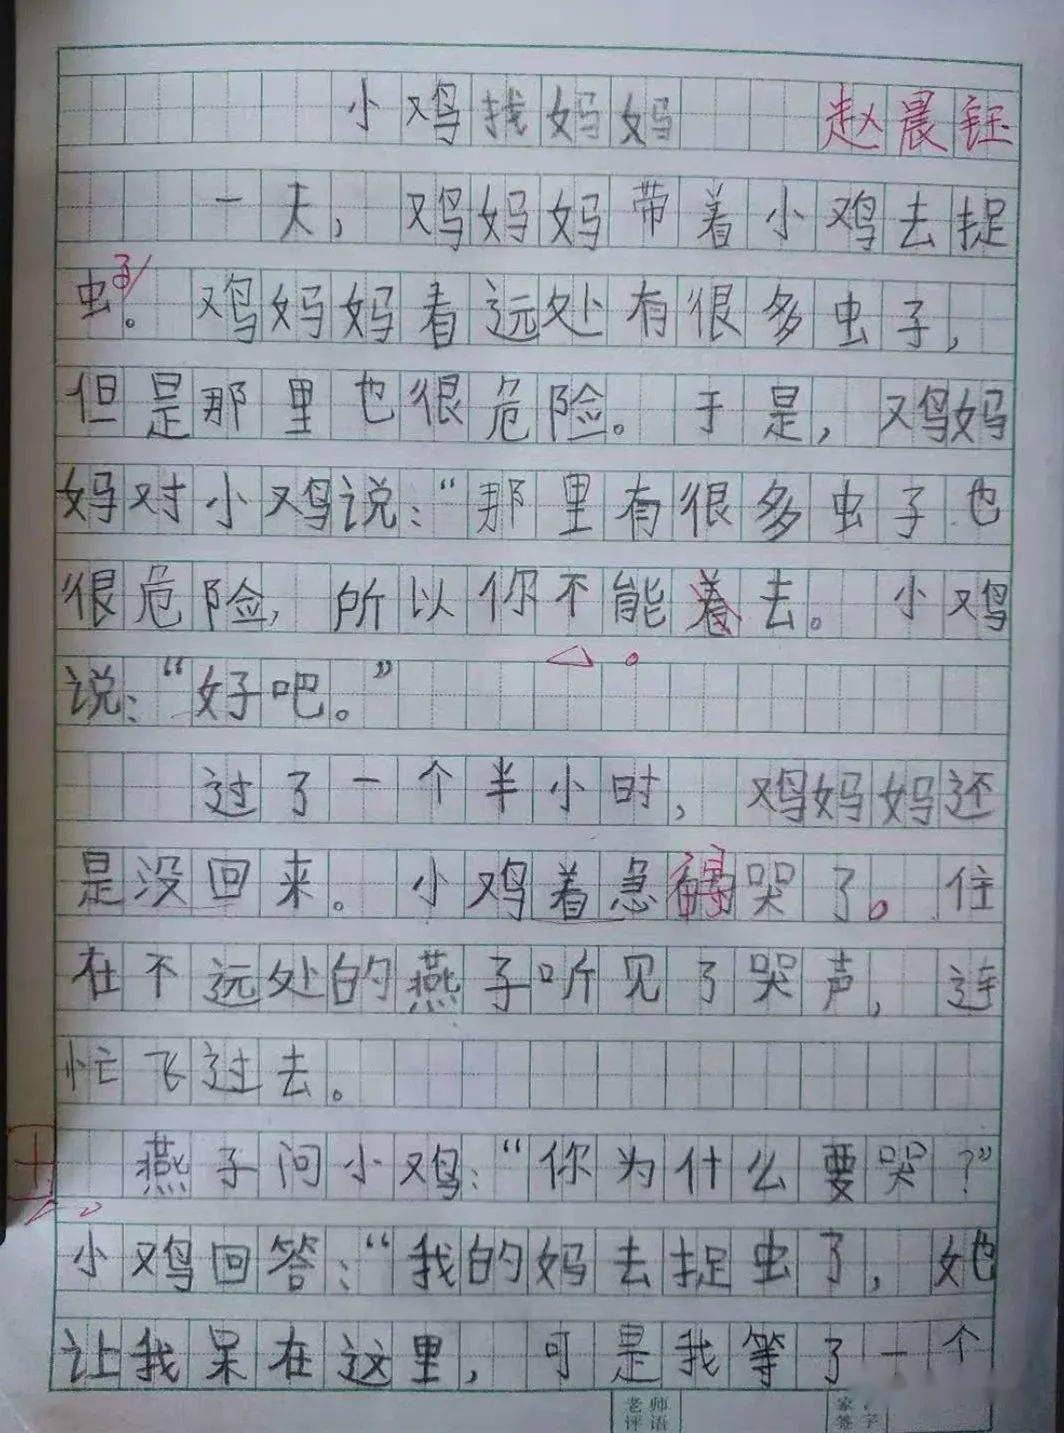 小鸡找妈妈 赵晨钰
一天，鸡妈妈带着小鸡去捉
虫子。鸡妈妈看远处有很多虫子，
但是那里也很危险。于是，鸡妈
妈对小鸡说：“那里有很多虫子也
很危险，所以你不能着去。小鸡
说：“好吧。”
过了一个半小时，鸡妈妈还
是没回来。小鸡着急哭了。住
在不远处的燕子听见了哭声，连
忙飞过去。
燕子问小鸡：“你为什么要哭？”
小鸡回答：“我的妈去捉虫了，她
让我呆在这里，可是我等了一个
老师评语 家 签字